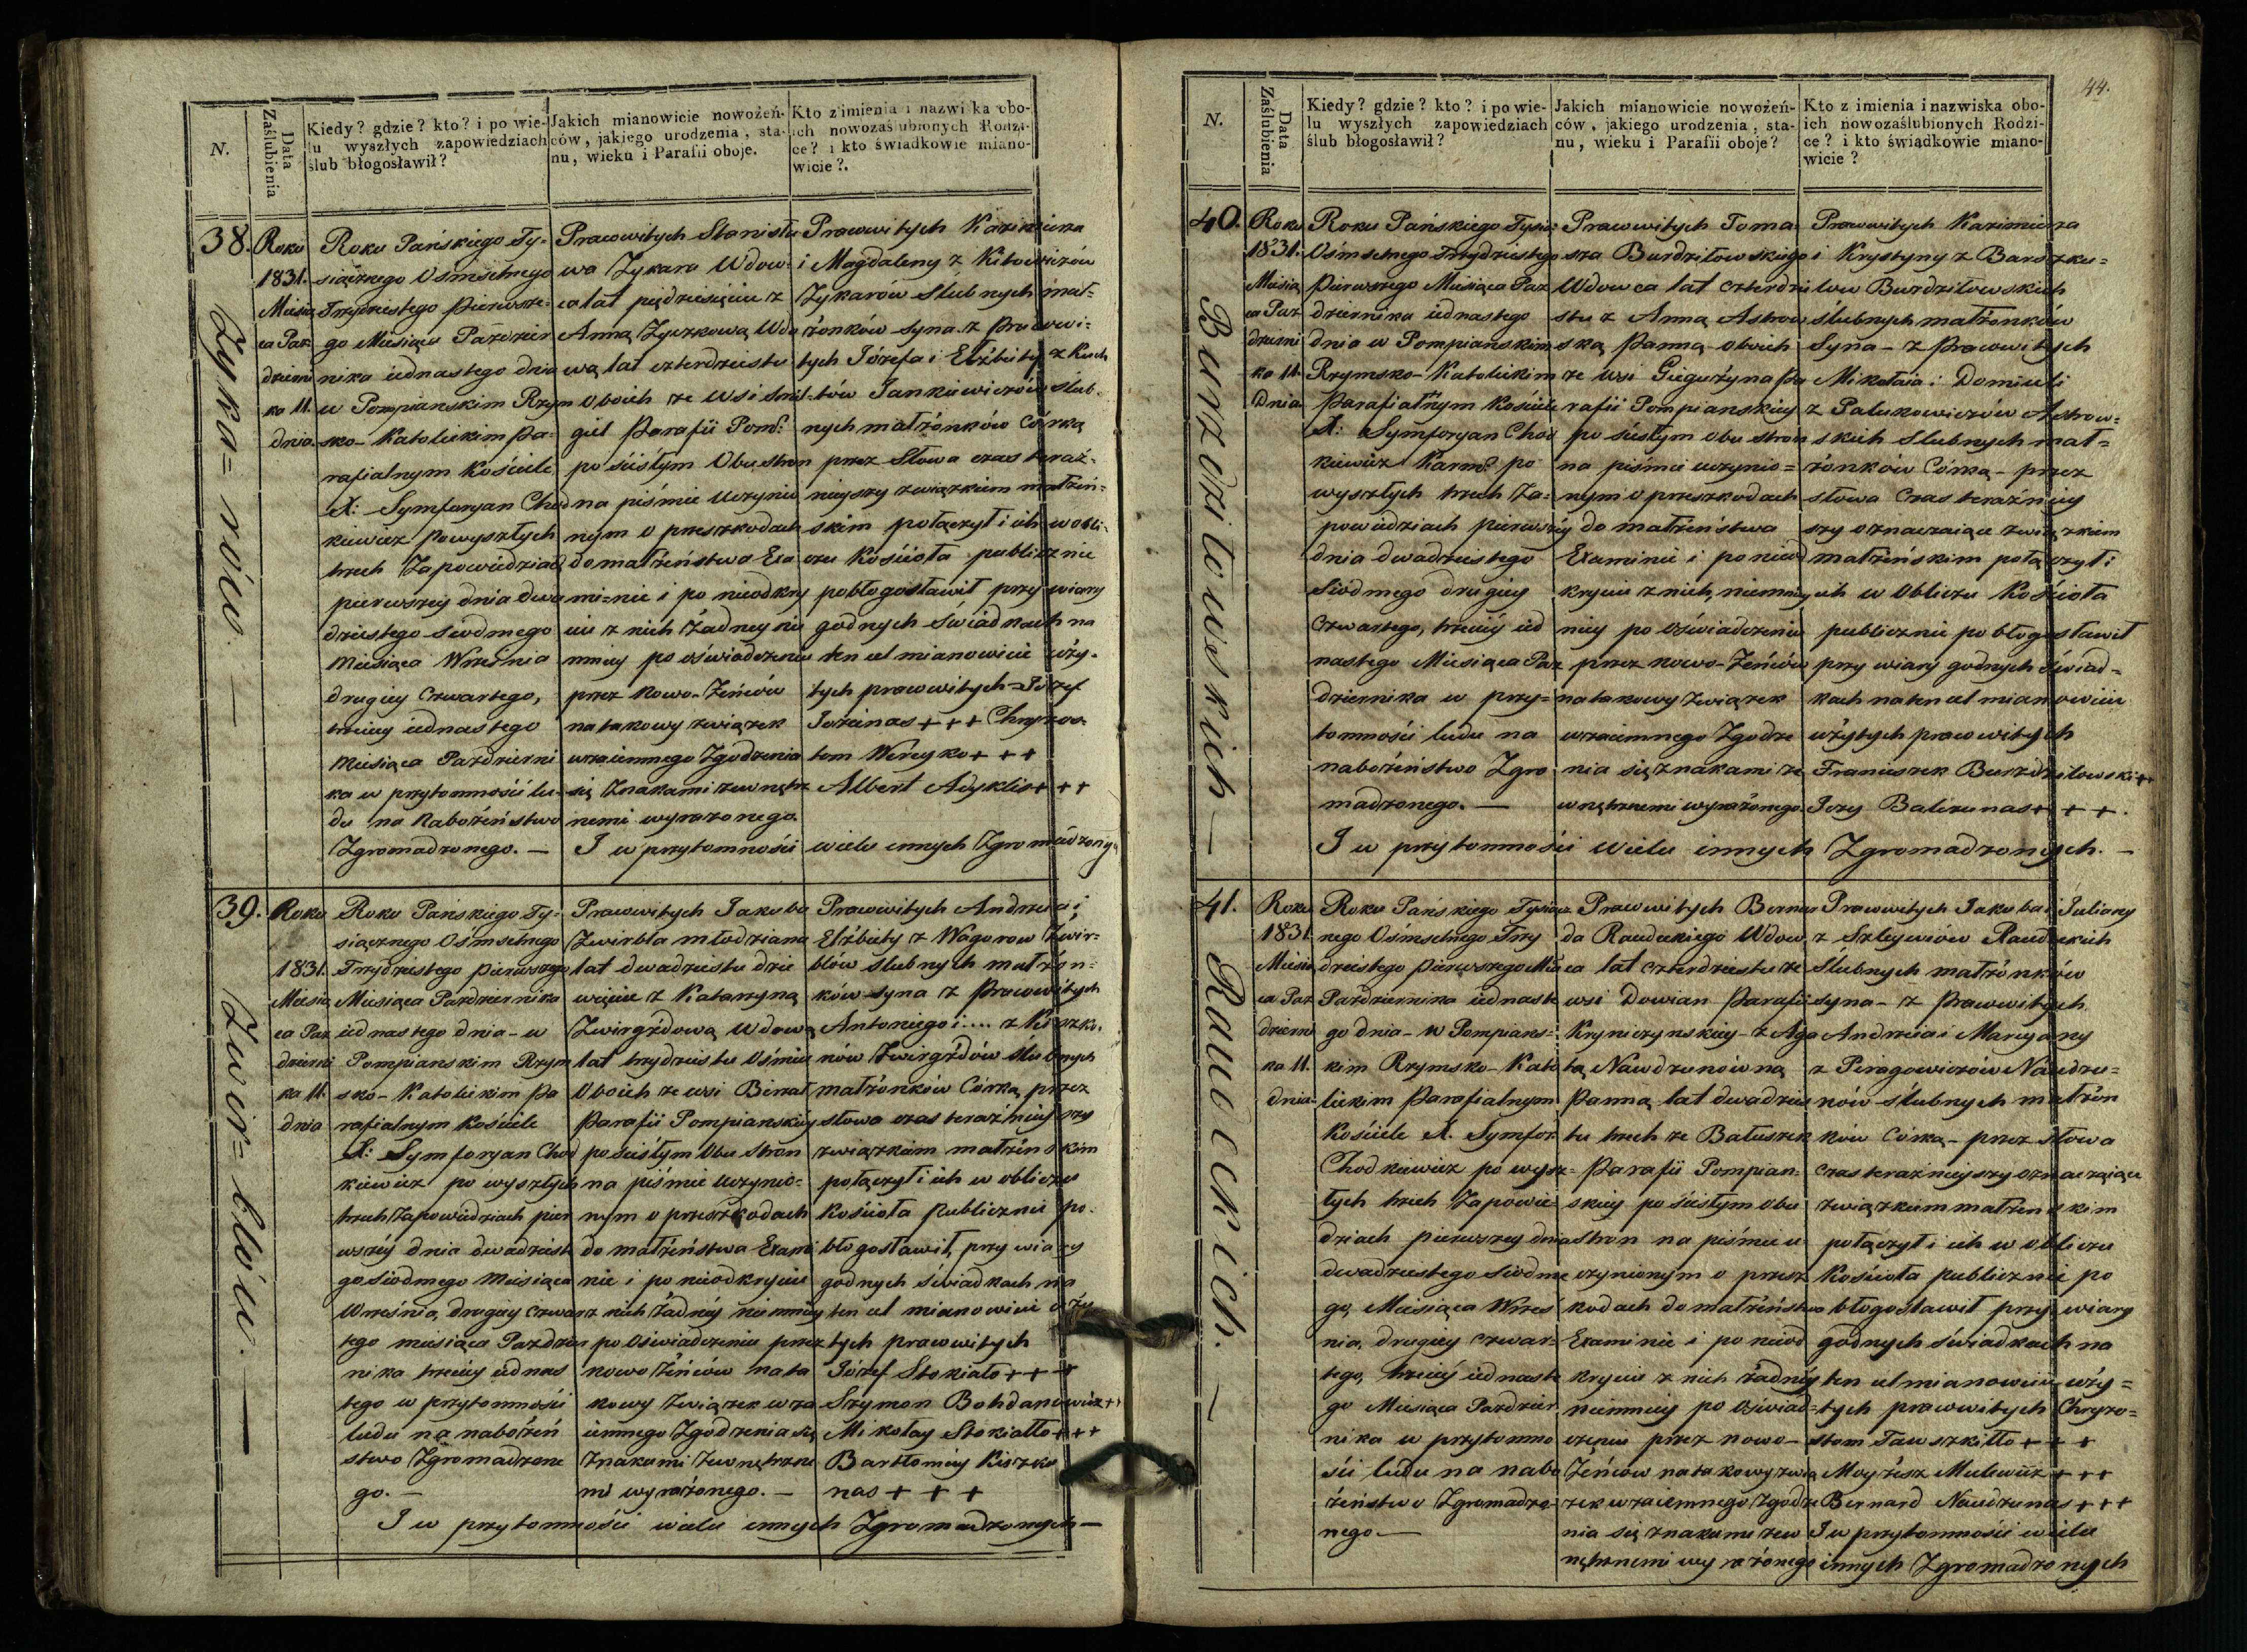 N.
Data
Zaślubienia
Kiedy? gdzie? kto? i po wie-
lu wyszłych zapowiedziach
ślub błogosławił?
Jakich mianowicie nowożeń-
ców, jakiego urodzenia, sta-
nu, wieku i Parafii oboje.
Kto z imienia i nazwiska obo-
ich nowozaślubionych Rodzi-
ce? i kto świadkowie miano-
wicie?.
38.
Roku
1831.
Miesią
ca Paź
dzierni
ka 11.
dnia
Roku Pańskiego Ty-
siącznego Ośmsetnego
Trzydziestego pierwsze-
go Miesiąca Paździer
nika iednastego dnia
w Pompianskim Rzym
sko-Katolickim Pa-
rafialnym Kościele
X: Symforyan Chod
kiewicz po wyszłych
trzech Zapowiedziach
pierwszey dnia dwu
dziestego siodmego
Miesiąca Września
drugiey czwartego,
trzeciey iednastego
Miesiąca Październi
ka w przytomności lu-
du na Nabożeństwo
Zgromadzonego. —
Prawowitych Stanisła
wa Zykara Wdow-
ca lat pędziesięciu z
Anną Zyczkową Wdo
wą lat czterdziestu
Oboich ze Wsi
giel Parafii Pomp:
po ścisłym Obu stron
na piśmie Uczynio
nym o przeszkodach
do małżeństwa Exa
minie i po nieodkry
ciu z nich żadney nie
mniey po oświadczeniu
przez Nowo-Żeńców
na takowy związek
wzaiemnego Zgodzenia
się Znakami zewnętrz
nemi wyrażonego.
Prawowitych Kazimierza
i Magdaleny z Kitowiczów
Zykarów Ślubnych mał-
żonków syna z Prawowi-
tych Józefa i Elżbiety z
Jankiewiczów ślub-
nych małżonków Córką
przez Słowa czas teraź-
nieyszy związkiem małżeń-
skim połączył i ich w obli-
czu Kościoła publicznie
pobłogosławił przy wiary
godnych Świadkach na
ten cel mianowicie uży-
tych prawowitych Józef
Jozeinas + + + Chryzos-
tom Wereyko + + +
Albert Adyklis + + +
I w przytomności wielu innych Zgromadzonych
Zyka-rów. —
39.
Roku
1831.
Miesią
ca Paź
dzierni
ka 11.
dnia
Roku Pańskiego Ty-
siącznego Ośmsetnego
Trzydziestego pierwszego
Miesiąca Października
iednastego dnia - w
Pompianskim Rzym
sko-Katolickim Pa
rafialnym Kościele
X: Symforyan Chod
kiewicz po wyszłych
trzech Zapowiedziach pier
wszéy dnia dwudziest
go siodmego Miesiąca
Września, drugiey czwar
tego miesiąca Paździer
nika trzeciey iednas
tego w przytomności
ludu na nabożeń
stwo Zgromadzone
go. —
Prawowitych Jakuba
Zwirbła młodziana
lat dwadziestu dzie
więciu z Katarzyną
Zwirgżdową Wdową
lat trzydziestu Ośmiu
Oboich ze wsi Birżał
Parafii Pompianskiey
po ścisłym Obu stron
na piśmie Uczynio-
nym o przeszkodach
do małżeństwa Exami
nie i po nieodkryciu
z nich żadnéy niemniey
po Oświadczeniu przez
nowo Żeńców na ta
kowy Związek wza
iemnego Zgodzenia się
Znakami Zewnętrzne
mi wyrażonego. —
Prawowitych Andrzeia i
Elżbiety z Wagorow Zwir-
blów ślubnych małżon-
ków syna z Prawowitych
Antoniego i .... z Kiszku-
nów Zwirgżdów ślubnych
małżonków Córką przez
słowa czas teraźnieyszy
związkiem małżeńskim
połączył i ich w obliczu
Kościoła Publicznie po-
błogosławił, przy wiary
godnych świadkach na
ten cel mianowicie uży
tych prawowitych
Józef Stokiało + + +
Szymon Bohdanowicz ++
Mikołay Stokiałło + + +
Bartłomiey Kiszku
nas + + +
I w przytomności wielu innych Zgromadzonych —
Zwir-blów. —
44.
N.
Data
Zaślubienia
Kiedy? gdzie? kto? i po wie-
lu wyszłych zapowiedziach
ślub błogosławił?
Jakich mianowicie nowożeń-
ców, jakiego urodzenia, sta-
nu, wieku i Parafii oboje?
Kto z imienia i nazwiska obo-
ich nowozaślubionych Rodzi-
ce? i kto świadkowie miano-
wicie?
40.
Roku
1831.
Miesią
ca Paź
dzierni
ka 11.
Dnia
Roku Pańskiego Tysią
Ośmsetnego Trzydziestego
Pierwszego Miesiąca Paź
dziernika iednastego
dnia w Pompianskim
Rzymsko-Katolickim
Parafialnym Kościele
X: Symforyan Chod
kiewicz Karm: po
wyszłych trzech Za-
powiedziach pierwszéy
dnia dwadziestego
Siodmego drugiey
Czwartego, trzeciéy ied
nastego Miesiąca Paź
dziernika w przy-
tomności ludu na
nabożeństwo Zgro
madzonego. —
Prawowitych Toma
sza Burdziłowskiego
Wdowca lat czterdzie
stu z Anną Astrow
ską Panną oboich
ze wsi Gieguzyna Pa
rafii Pompianskiey
po ścisłym obu stron
na piśmie uczynio=
nym o przeszkodach
do małżeństwa
Examinie i po nieod
kryciu z nich, niemniey
niey po Oświadczeniu
przez nowo-Żeńców
na takowy Związek
wzaiemnego Zgodze
nia się znakami ze
wnętrznemi wyrażonego
Prawowitych Kazimierza
i Krystyny z Barszku=
lew Burdziłowskich
ślubnych małżonków
Syna - z Prawowitych
Mikołaia i Domiceli
z Palukowiczów Astrow-
skich Slubnych mał=
żonków Córką - przez
słowa Czas teraźniey
szy oznaczaiące związkiem
małżeńskim połączył i
ich w Obliczu Kościoła
publicznie pobłogosławił
przy wiary godnych świad-
kach na ten cel mianowicie
użytych prawowitych
Franciszek Burzdziłowski ++
Jozy Balczunas + + +.
I w przytomności wielu innych Zgromadzonych. —
Burzdziłowskich —
41.
Roku
1831
Miesią
ca Paź
dzierni
ka 11.
dnia
Roku Pańskiego Tysiącz
nego Ośmsetnego Trzy
dziestego pierwszego Mie
Października iednaste
go dnia - w Pompians=
kim Rzymsko-Kato
lickim Parafialnym
Kościele X. Symfor
Chodkiewicz po wysz=
łych trzech Zapowie
dziach pierwszey dnia
dwadziestego siodme
go, Miesiąca Wrześ
nia, drugiey czwar-
tego, trzeciéy iednaste
go Miesiąca Paździer
nika w przytomno
ści ludu na nabo
żeństwo Zgromadzo-
nego —
Prawowitych Bernar
da Rauduckiego Wdow
ca lat czterdziestu ze
wsi Dowian Parafii
Kryniczynskiey - z Aga
tą Nawdzunówną
Panną lat dwadzie
tu trzech ze Bałuszek
Parafii Pompian=
skiey po ścisłym Obu
stron na piśmie u
czynionym o przesz
kodach do małżeństwa
Examinie i po nieod
kryciu z nich żadnéy
niemniey po Oświad=
czeniu przez nowo-
Żeńców na takowy zwią
zek wzaiemnego Zgodze
nia się znakami zew
nętrznemi wyrażonego
Prawowitych Jakuba i Juliany
z Szleywiów Raudeckich
Ślubnych małżonków
syna - z Prawowitych
Andrzeia i Maryany
z Piragowiczów Naudzu=
nów ślubnych małżon
ków Córką - przez słowa
czas teraźnieyszy oznaczaiące
związkiem małżeńskim
połączył i ich w obliczu
Kościoła publicznie po
błogosławił przy wiary
godnych świadkach na
ten cel mianowicie uży=
tych prawowitych Chryzo=
stom Tawszkiłło + + +
Moyżesz Mulewicz + + +
Bernard Nawdzunas + + +
I w przytomności wielu
innych Zgromadzonych
Raudeckich. —